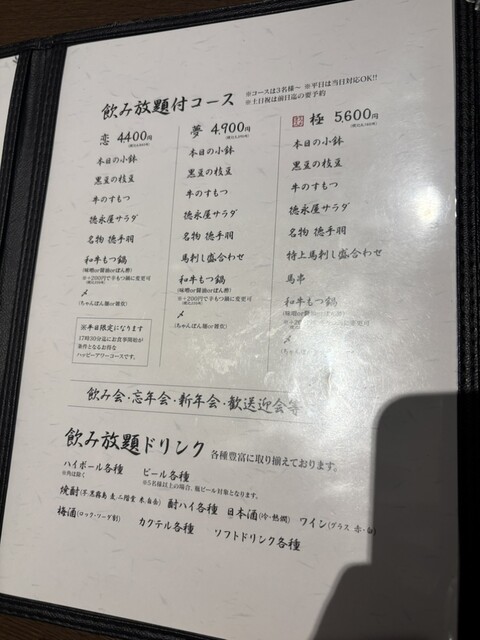 飲み放題付コース
※コースは3名様～ ※平日は当日対応OK!!
※土日祝は前日迄の要予約
恋 4,400円
本日の小鉢
黒豆の枝豆
牛のすもつ
徳永屋サラダ
名物 徳手羽
和牛もつ鍋
(味噌or醤油orぽん酢)
※+200円で辛もつ鍋に変更可
〆
(ちゃんぽん麺or雑炊)
※平日限定になります
17時30分迄にお食事開始が
条件となるお得な
ハッピーアワーコースです。
夢 4,900円
本日の小鉢
黒豆の枝豆
牛のすもつ
徳永屋サラダ
名物 徳手羽
馬刺し盛合わせ
和牛もつ鍋
(味噌or醤油orぽん酢)
※+200円で辛もつ鍋に変更可
〆
(ちゃんぽん麺or雑炊)
極 5,600円
本日の小鉢
黒豆の枝豆
牛のすもつ
徳永屋サラダ
名物 徳手羽
特上馬刺し盛合わせ
馬串
和牛もつ鍋
(味噌or醤油orぽん酢)
※+200円で辛もつ鍋に変更可
〆
(ちゃんぽん麺or雑炊)
飲み会・忘年会・新年会・歓送迎会等
飲み放題ドリンク 各種豊富に取り揃えております。
ハイボール各種 ビール各種
※角は除く ※5名様以上の場合、瓶ビール対象となります。
焼酎(芋.黒霧島 麦.二階堂 米.白岳) 酎ハイ各種 日本酒(冷・熱燗) ワイン(グラス 赤・白)
梅酒(ロック・ソーダ割) カクテル各種 ソフトドリンク各種